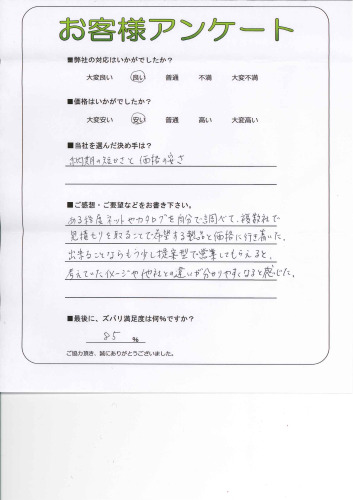 お客様アンケート
■弊社の対応はいかがでしたか?
大変良い 良い 普通 不満 大変不満
■価格はいかがでしたか?
大変安い 安い 普通 高い 大変高い
■当社を選んだ決め手は?
納期の短かさと価格の安さ
■ご感想・ご要望などをお書き下さい。
ある程度ネットやカタログを自分で調べて、複数社で
見積もりを取ることで希望する製品と価格に行き着いた。
出来ることならもう少し提案型で営業してもらえると、
考えていたイメージや他社との違いが分かりやすくなると感じた。
■最後に、ズバリ満足度は何%ですか?
85 %
ご協力頂き、誠にありがとうございました。